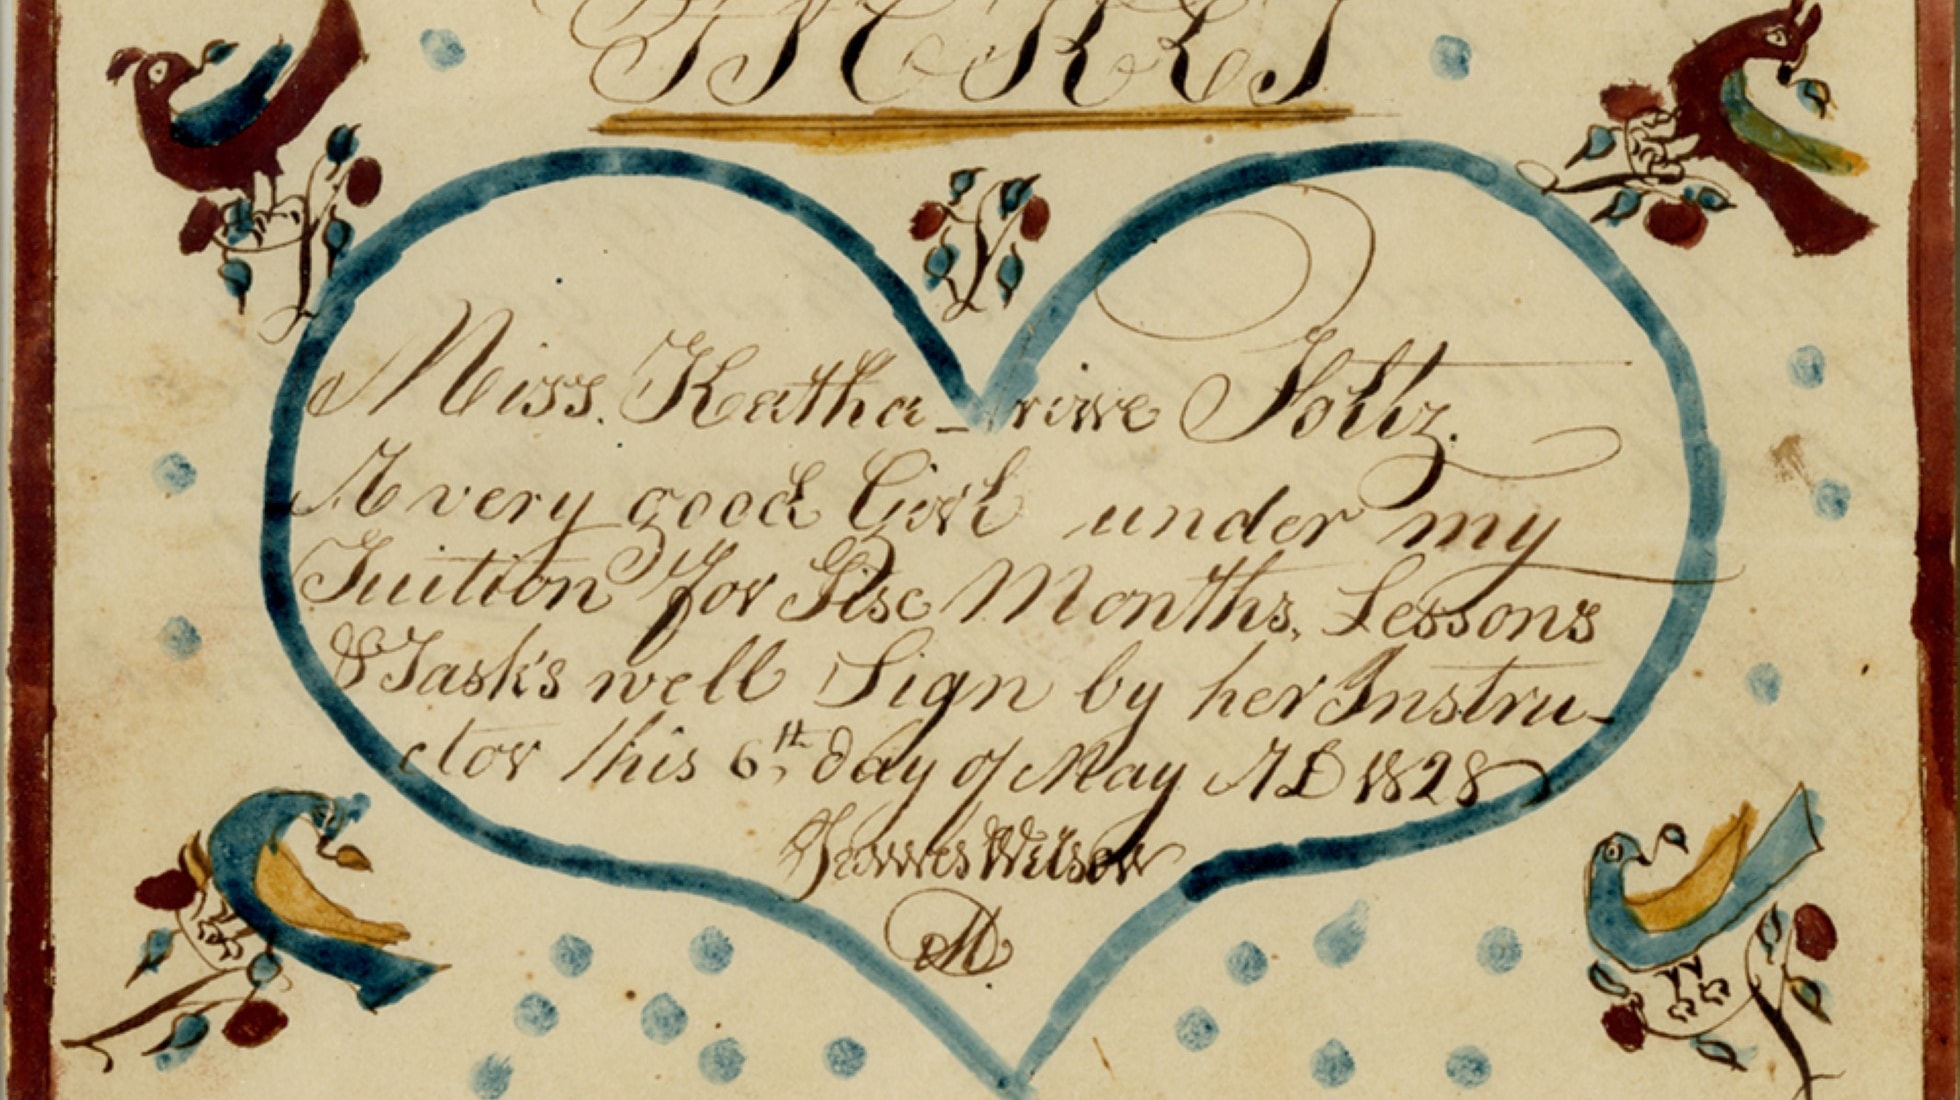 Miss. Katha_rine Foltz.
A very good Girl under my
Tuition for Six Months, Lessons
& Task's well Sign by her Instru-
ctor this 6th day of May AD 1828
James Wilson